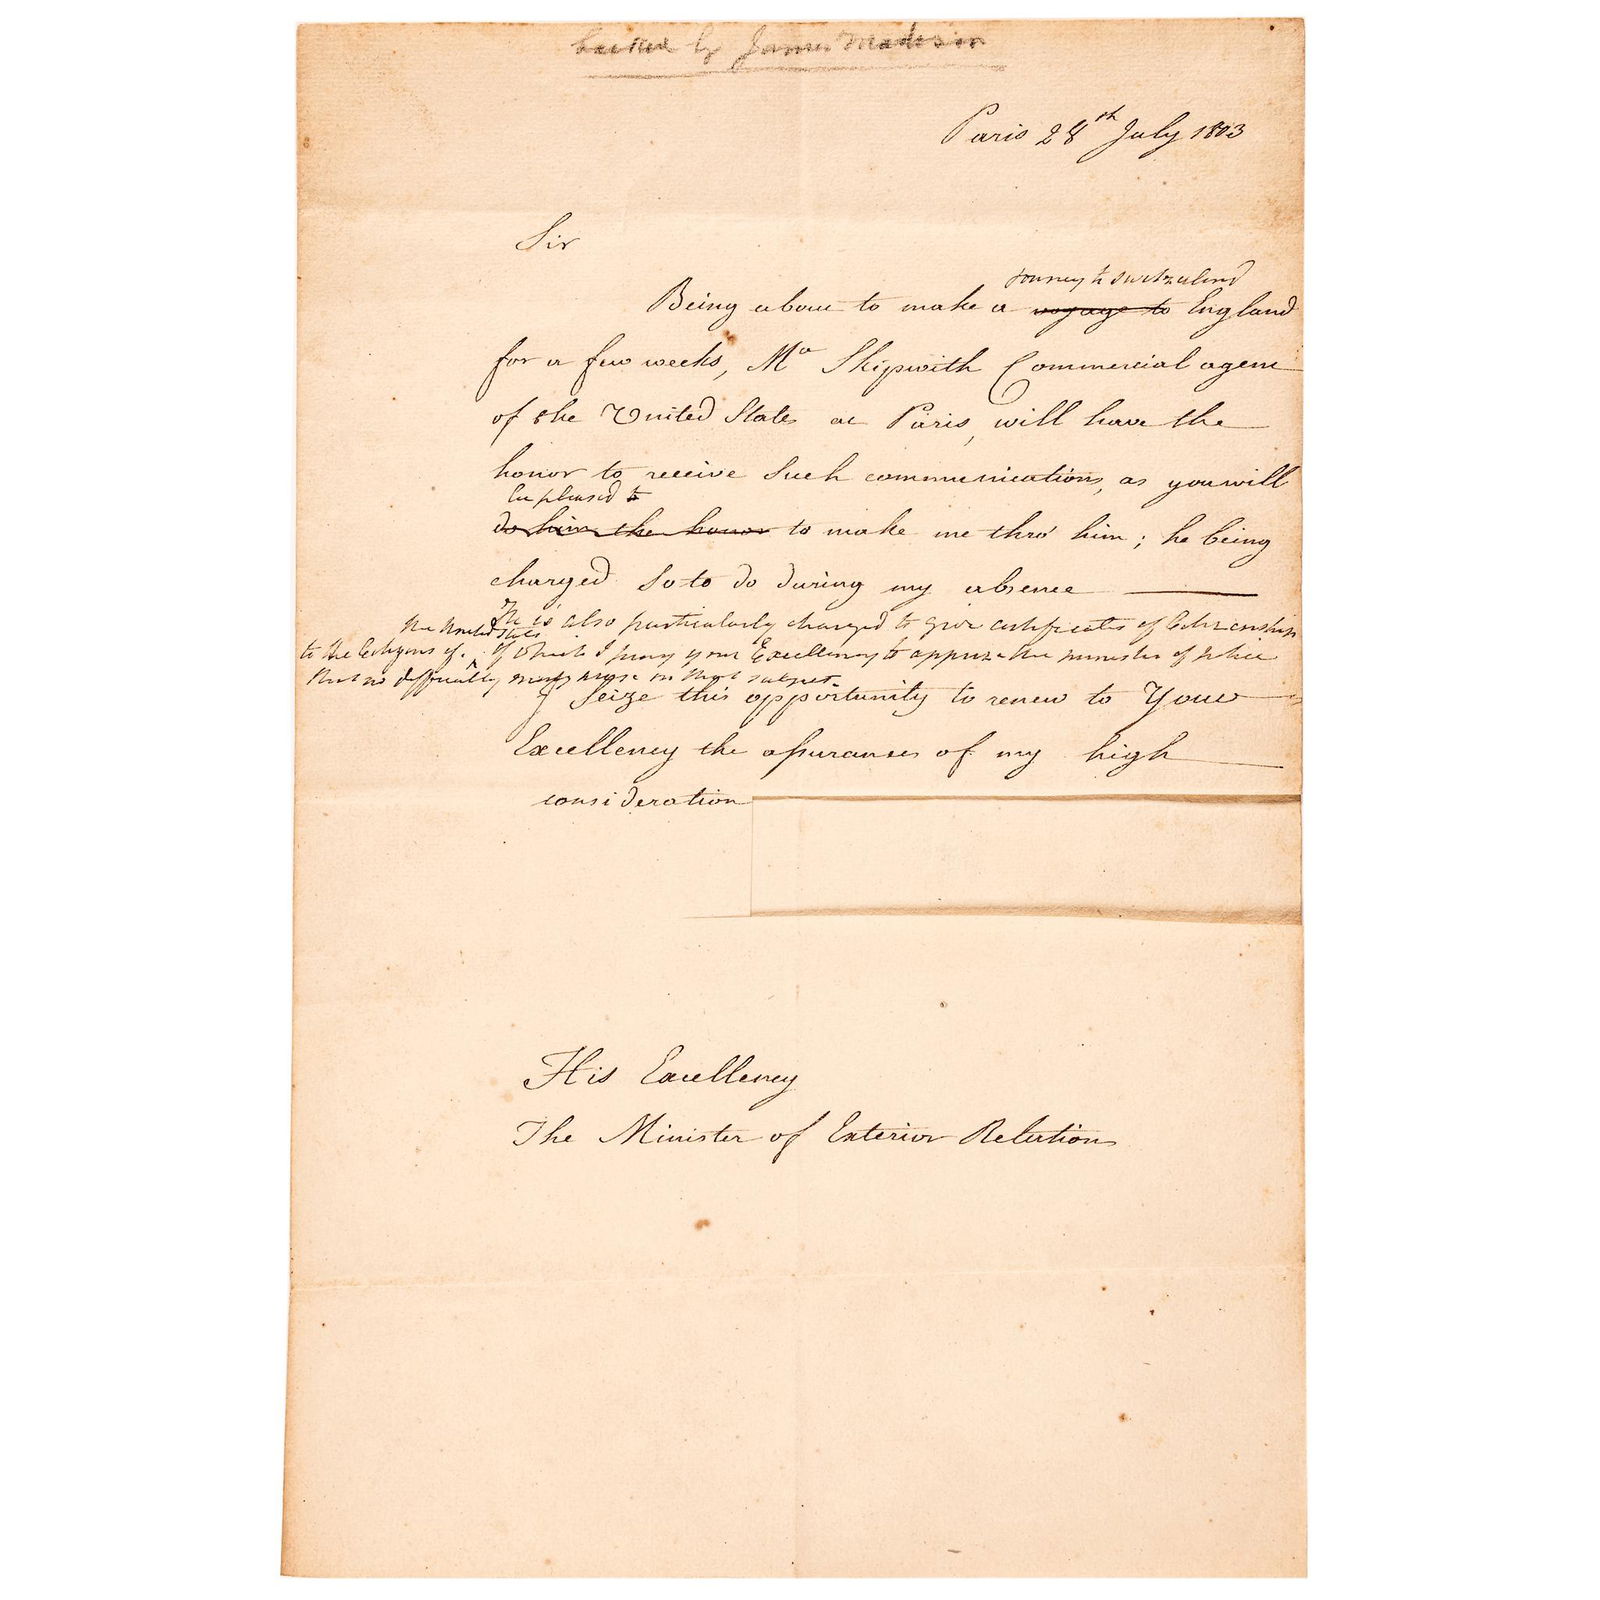 backed by James Madison
Paris 28th July 1803
Sir
journey to Switzerland
Being about to make a voyage to England
for a few weeks, Mr Skipwith Commercial agent
of the United States at Paris, will have the
honor to receive such communications, as you will
be pleased to
do him the honor to make me thro' him; he being
charged so to do during my absence
He is also particularly charged to give certificates of Citizenship
the United States
to the Citizens of. Of which I pray your Excellency to apprize the minister of police
that no difficulty may arise on that subject
I seize this opportunity to renew to Your
Excellency the assurances of my high
consideration
His Excellency
The Minister of Exterior Relations